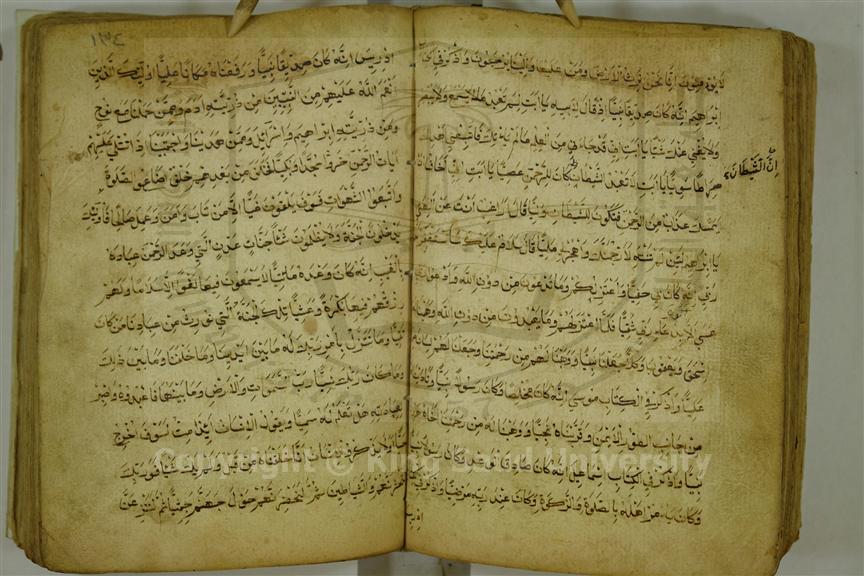 لا يؤمنون انا نحن نرث الارض ومن عليها والينا يرجعون واذكر في
ابراهيم انه كان صديقا نبيا اذ قال لابيه يا ابت لم تعبد ما لا يسمع ولا يبصر
ولا يغني عنك شيئا يا ابت اني قد جاءني من العلم ما لم ياتك فاتبعني اهدك
صراطا سويا يا ابت لا تعبد الشيطان كان للرحمن عصيا يا ابت اني اخاف
ان الشيطان
يمسك عذاب من الرحمن فتكون للشيطان وليا قال اراغب انت عن
يا ابرهيم لئن لم تنته لارجمنك واهجرني مليا قال سلام عليك ساستغفر
ربي انه كان بي حفيا واعتزلكم وما تدعون من دون الله وادعو
عسى الا بدعاء ربي شقيا فلما اعتزلهم وما يعبدون من دون الله وهبنا
اسحق ويعقوب وكلا جعلنا نبيا ووهبنا لهم من رحمتنا وجعلنا لهم لسان
عليا واذكر في الكتاب موسى انه كان مخلصا وكان رسولا نبيا
من جانب الطور الايمن وقربناه نجيا ووهبنا له من رحمتنا اخاه
نبيا واذكر في الكتاب اسماعيل انه كان صادق الوعد وكان رسولا
وكان يامر اهله بالصلوة والزكوة وكان عند ربه مرضيا واذكر في
١٣٤
ادريس انه كان صديقا نبيا ورفعناه مكانا عليا اولئك الذين
انعم الله عليهم من النبيين من ذرية ادم وممن حملنا مع نوح
ومن ذرية ابراهيم واسرائيل وممن هدينا واجتبينا اذا تتلى عليهم
ايات الرحمن خروا سجدا وبكيا فخلف من بعدهم خلف اضاعوا الصلوة
واتبعوا الشهوات فسوف يلقون غيا الا من تاب وامن وعمل صالحا فاولئك
يدخلون الجنة ولا يظلمون شيئا جنات عدن التي وعد الرحمن عباده
بالغيب انه كان وعده ماتيا لا يسمعون فيها لغوا الا سلاما ولهم
رزقهم فيها بكرة وعشيا تلك الجنة التي نورث من عبادنا من كان
تقيا وما نتنزل الا بامر ربك له ما بين ايدينا وما خلفنا وما بين ذلك
وما كان ربك نسيا رب السموات والارض وما بينهما فاعبده واصطبر
لعبادته هل تعلم له سميا ويقول الانسان ائذا ما مت لسوف اخرج
حيا اولا يذكر الانسان انا خلقناه من قبل ولم يك شيئا فوربك
لنحشرنهم والشياطين ثم لنحضرنهم حول جهنم جثيا ثم لننزعن
Copyright © King Saud University